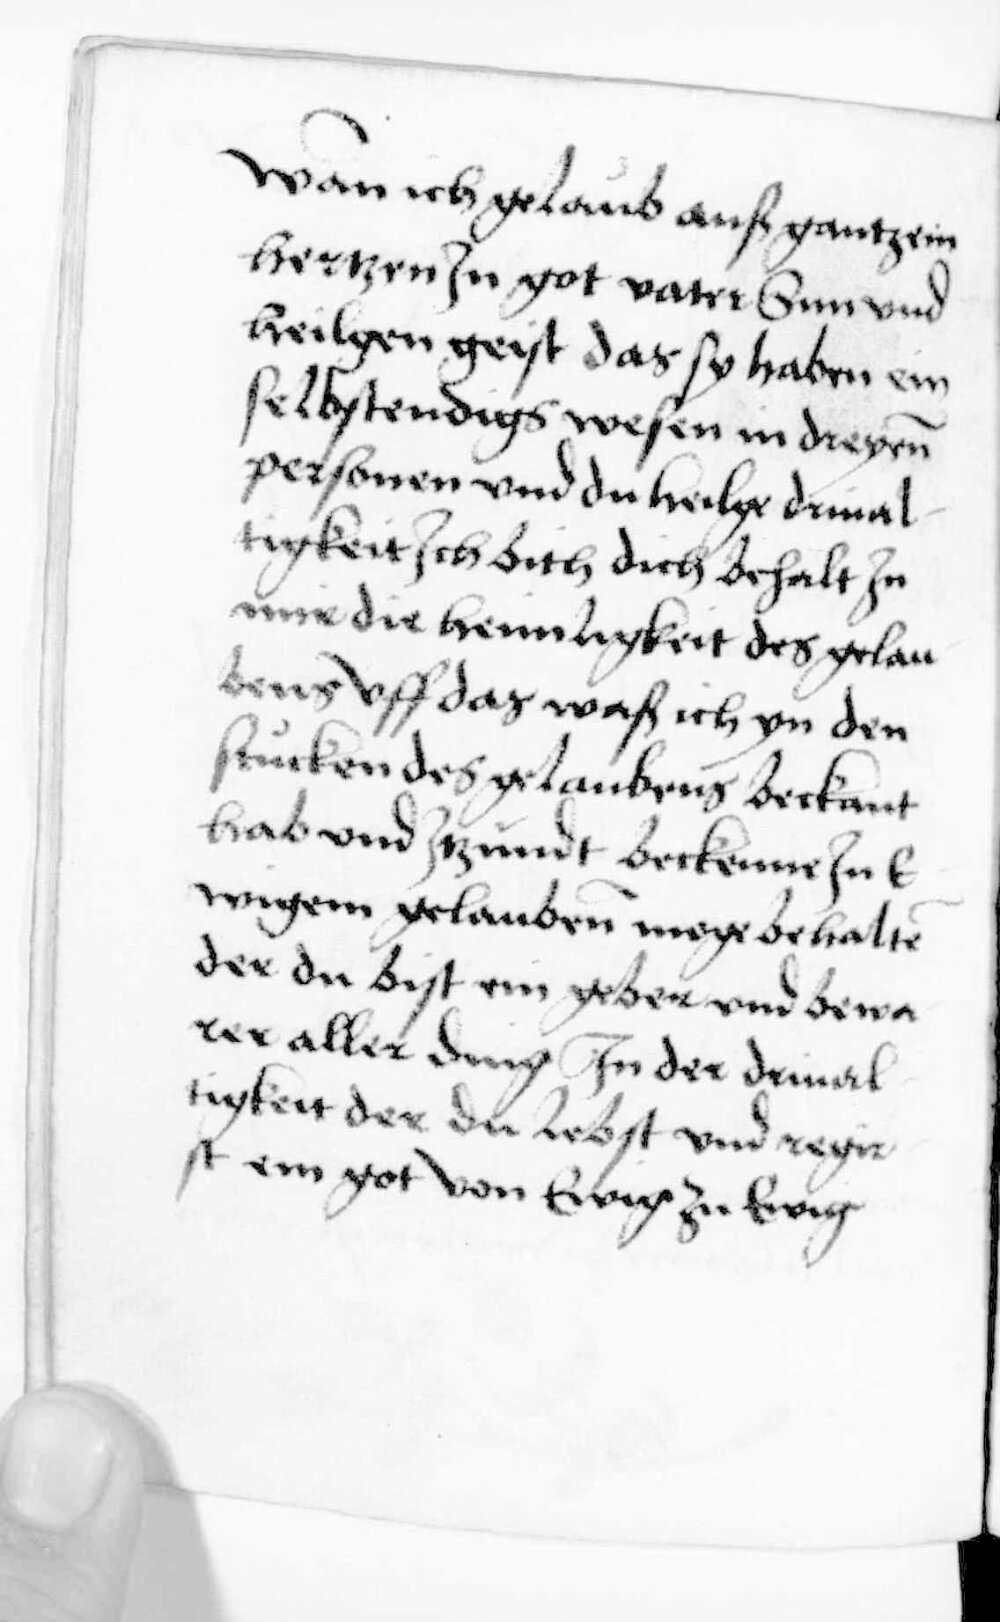 Wan ich gelaub auß gantzem
hertzen In got vater Sun vnd
heilgen geist das sy haben ein
selbstendigs wesen in dreyen̄
personen vnd du heilge driual-
tigkeit Ich bith dich behalt In
mir die heimligkeit des gelau-
bens Vff das waß ich yn den
stucken des gelaubens beckant
hab vnd Itzundt beckenne In E-
wigem gelauben̄ mege behaltē
der du bist ein geber vnd bewa-
rer aller ding In der driual-
tigkeit der du lebst vnd regir-
st ein got von Ewig zu Ewig